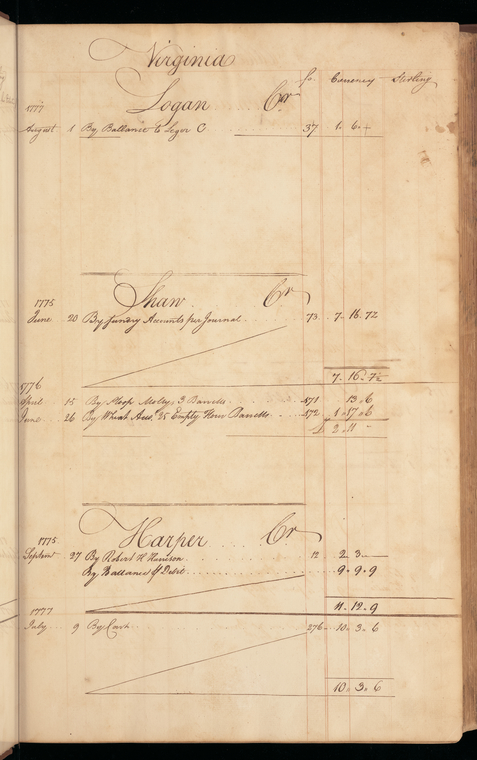 Virginia
fo. Currency Sterling
Logan Cr
1777
August 1 By Ballance to Leger C 37 1. 6. +
Shaw Cr
1775
June 20 By Sundry Accounts per Journal 73 7. 16. 7½
7. 16. 7½
1776
April 15 By Sloop Molly, 3 Barrells 171 13. 6
June 26 By Wheat Acct, 35 Empty Flour Barrells 172 1. 17. 6
£ 2. 11 -
Harper Cr
1775
Septemr 27 By Robert H Harrison 12 2. 3. —
By Ballance 9. 9. 9
11. 12. 9
1777
July 9 By Cash 276 10. 3. 6
10. 3. 6